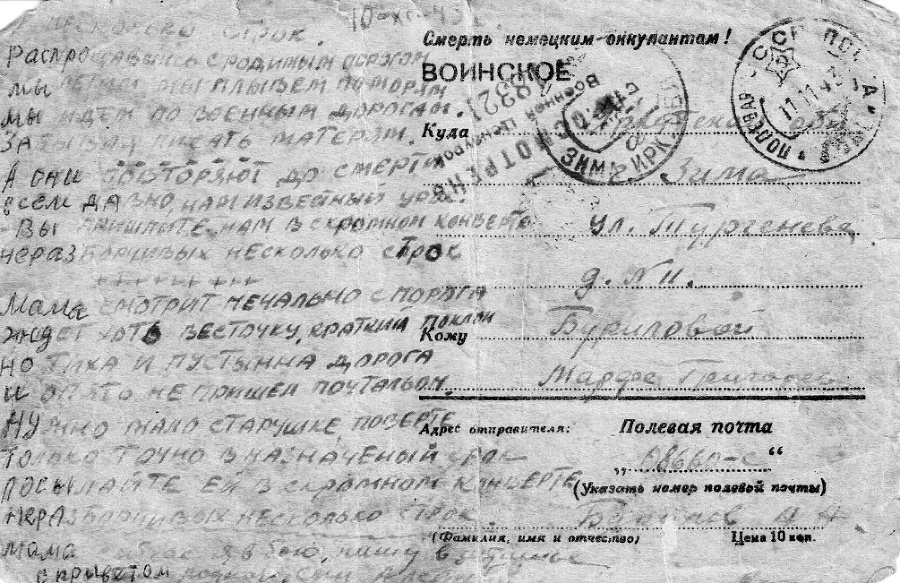 Несколько строк.
Распрощавшись с родимым порогом
мы плывем по морям
мы идем по военным дорогам
забывая писать матерям.
А они повторяют до смерти
всем давно, нам известный урок
-Вы пришлите нам в скромном конверте
неразборчивых несколько строк
Мама смотрит печально с порога
ждет хоть весточку, краткий поклон
но тиха и пустынна дорога
и опять не пришел почтальон
нужно мало старушке поверте
только точно в назначеный срок
посылайте ей в скромном конверте
неразборчивых несколько строк.
Мама я в бою, пишу
с приветом
Смерть немецким оккупантам!
ВОИНСКОЕ
Куда
г. Зима
ул. Тургенева
д. №11.
Кому
Буриловой
Марфе
Адрес отправителя:
Полевая почта
„08660-с“
(Указать номер полевой почты)
(Фамилия, имя и отчество)
Цена 10 коп.
СССР
ПОЛЕВАЯ ПОЧТА
11 11 43
ПРОСМОТРЕНО
Военной Цензурой
ЗИМА ИРК